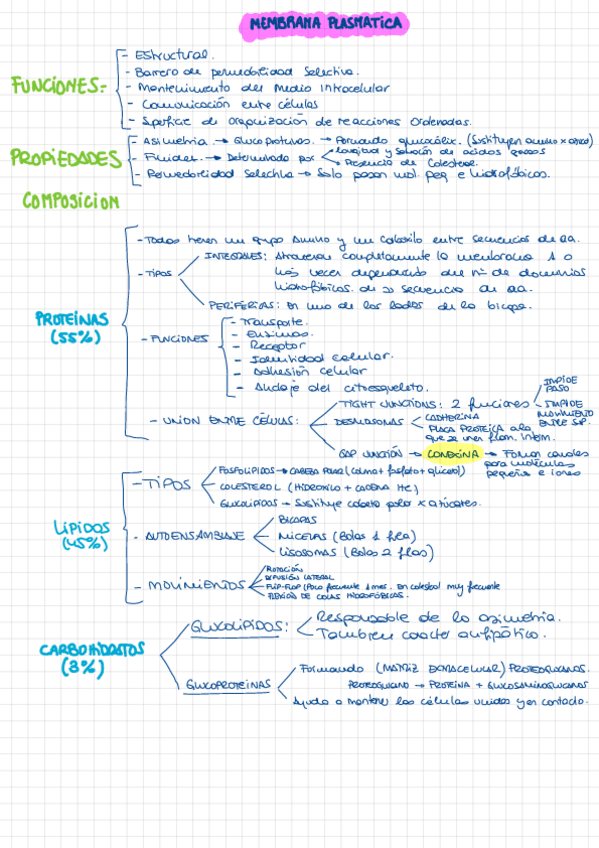 MEMBRANA PLASMATICA
FUNCIONES:-
- Estructural.
- Barrera de permeabilidad Selectiva.
- Mantenimiento del Medio Intracelular
- Comunicación entre células
- Superficie de organización de reacciones Ordenadas.
PROPIEDADES
- Asimetria → Glucoproteinas → Formando glucocálix. (Sustituyen amino x
- Fluidez → Determinada por longitud y saturación de acidos grasos
→ Presencia de Colesterol
- Permeabilidad Selectiva → Solo pasan mol. peq e hidrofóbicas.
COMPOSICION
PROTEÍNAS
(55%)
- Todas tienen un grupo Amino y un Carboxilo entre secuencias de aa.
- TIPOS
INTEGRALES: Atraviesan completamente la membrana 1 o
más veces dependiendo del nº de dominios
hidrofóbicos de su secuencia de aa.
PERIFERICAS: En uno de los lados de la bicapa.
- FUNCIONES
- Transporte.
- Enzimas.
- Receptor
- Identidad celular.
- Adhesión celular
- Anclaje del citoesqueleto.
- UNION ENTRE CÉLULAS:
TIGHT JUNCTIONS: 2 funciones
IMPIDE PASO
IMPIDE MOVIMIENTO ENTRE SUP.
DESMOSOMAS
CADHERINA
PLACA PROTEICA a la
que se unen filam. interm.
GAP JUNCTIÓN → CONEXINA → Forman canales
para moléculas
pequeñas e iones
LÍPIDOS
(45%)
- TIPOS
FOSFOLIPIDOS → CABEZA POLAR (colina + fosfato + glicerol)
COLESTEROL (HIDROXILO + CADENA HC)
GLUCOLIPIDOS → Sustituye cabeza polar x azúcares.
- AUTOENSAMBLAJE
BICAPAS
MICELAS (Bolas 1 fila)
LISOSOMAS (Bolas 2 filas)
- MOVIMIENTOS
ROTACIÓN
DIFUSIÓN LATERAL
FLIP-FLOP (Poco frecuente 1 mes. En colesterol muy frecuente
FLEXIÓN DE COLAS HIDROFÓBICAS.
CARBOHIDRATOS
(3%)
GLUCOLÍPIDOS:
Responsable de la asimetria.
También caracter anfipático.
GLUCOPROTEINAS
Formando (MATRIZ EXTRACELULAR) PROTEOGLICANOS.
PROTEOGLICANO → PROTEÍNA + GLUCOSAMINOGLUCANOS
Ayuda a mantener las células unidas y en contacto.